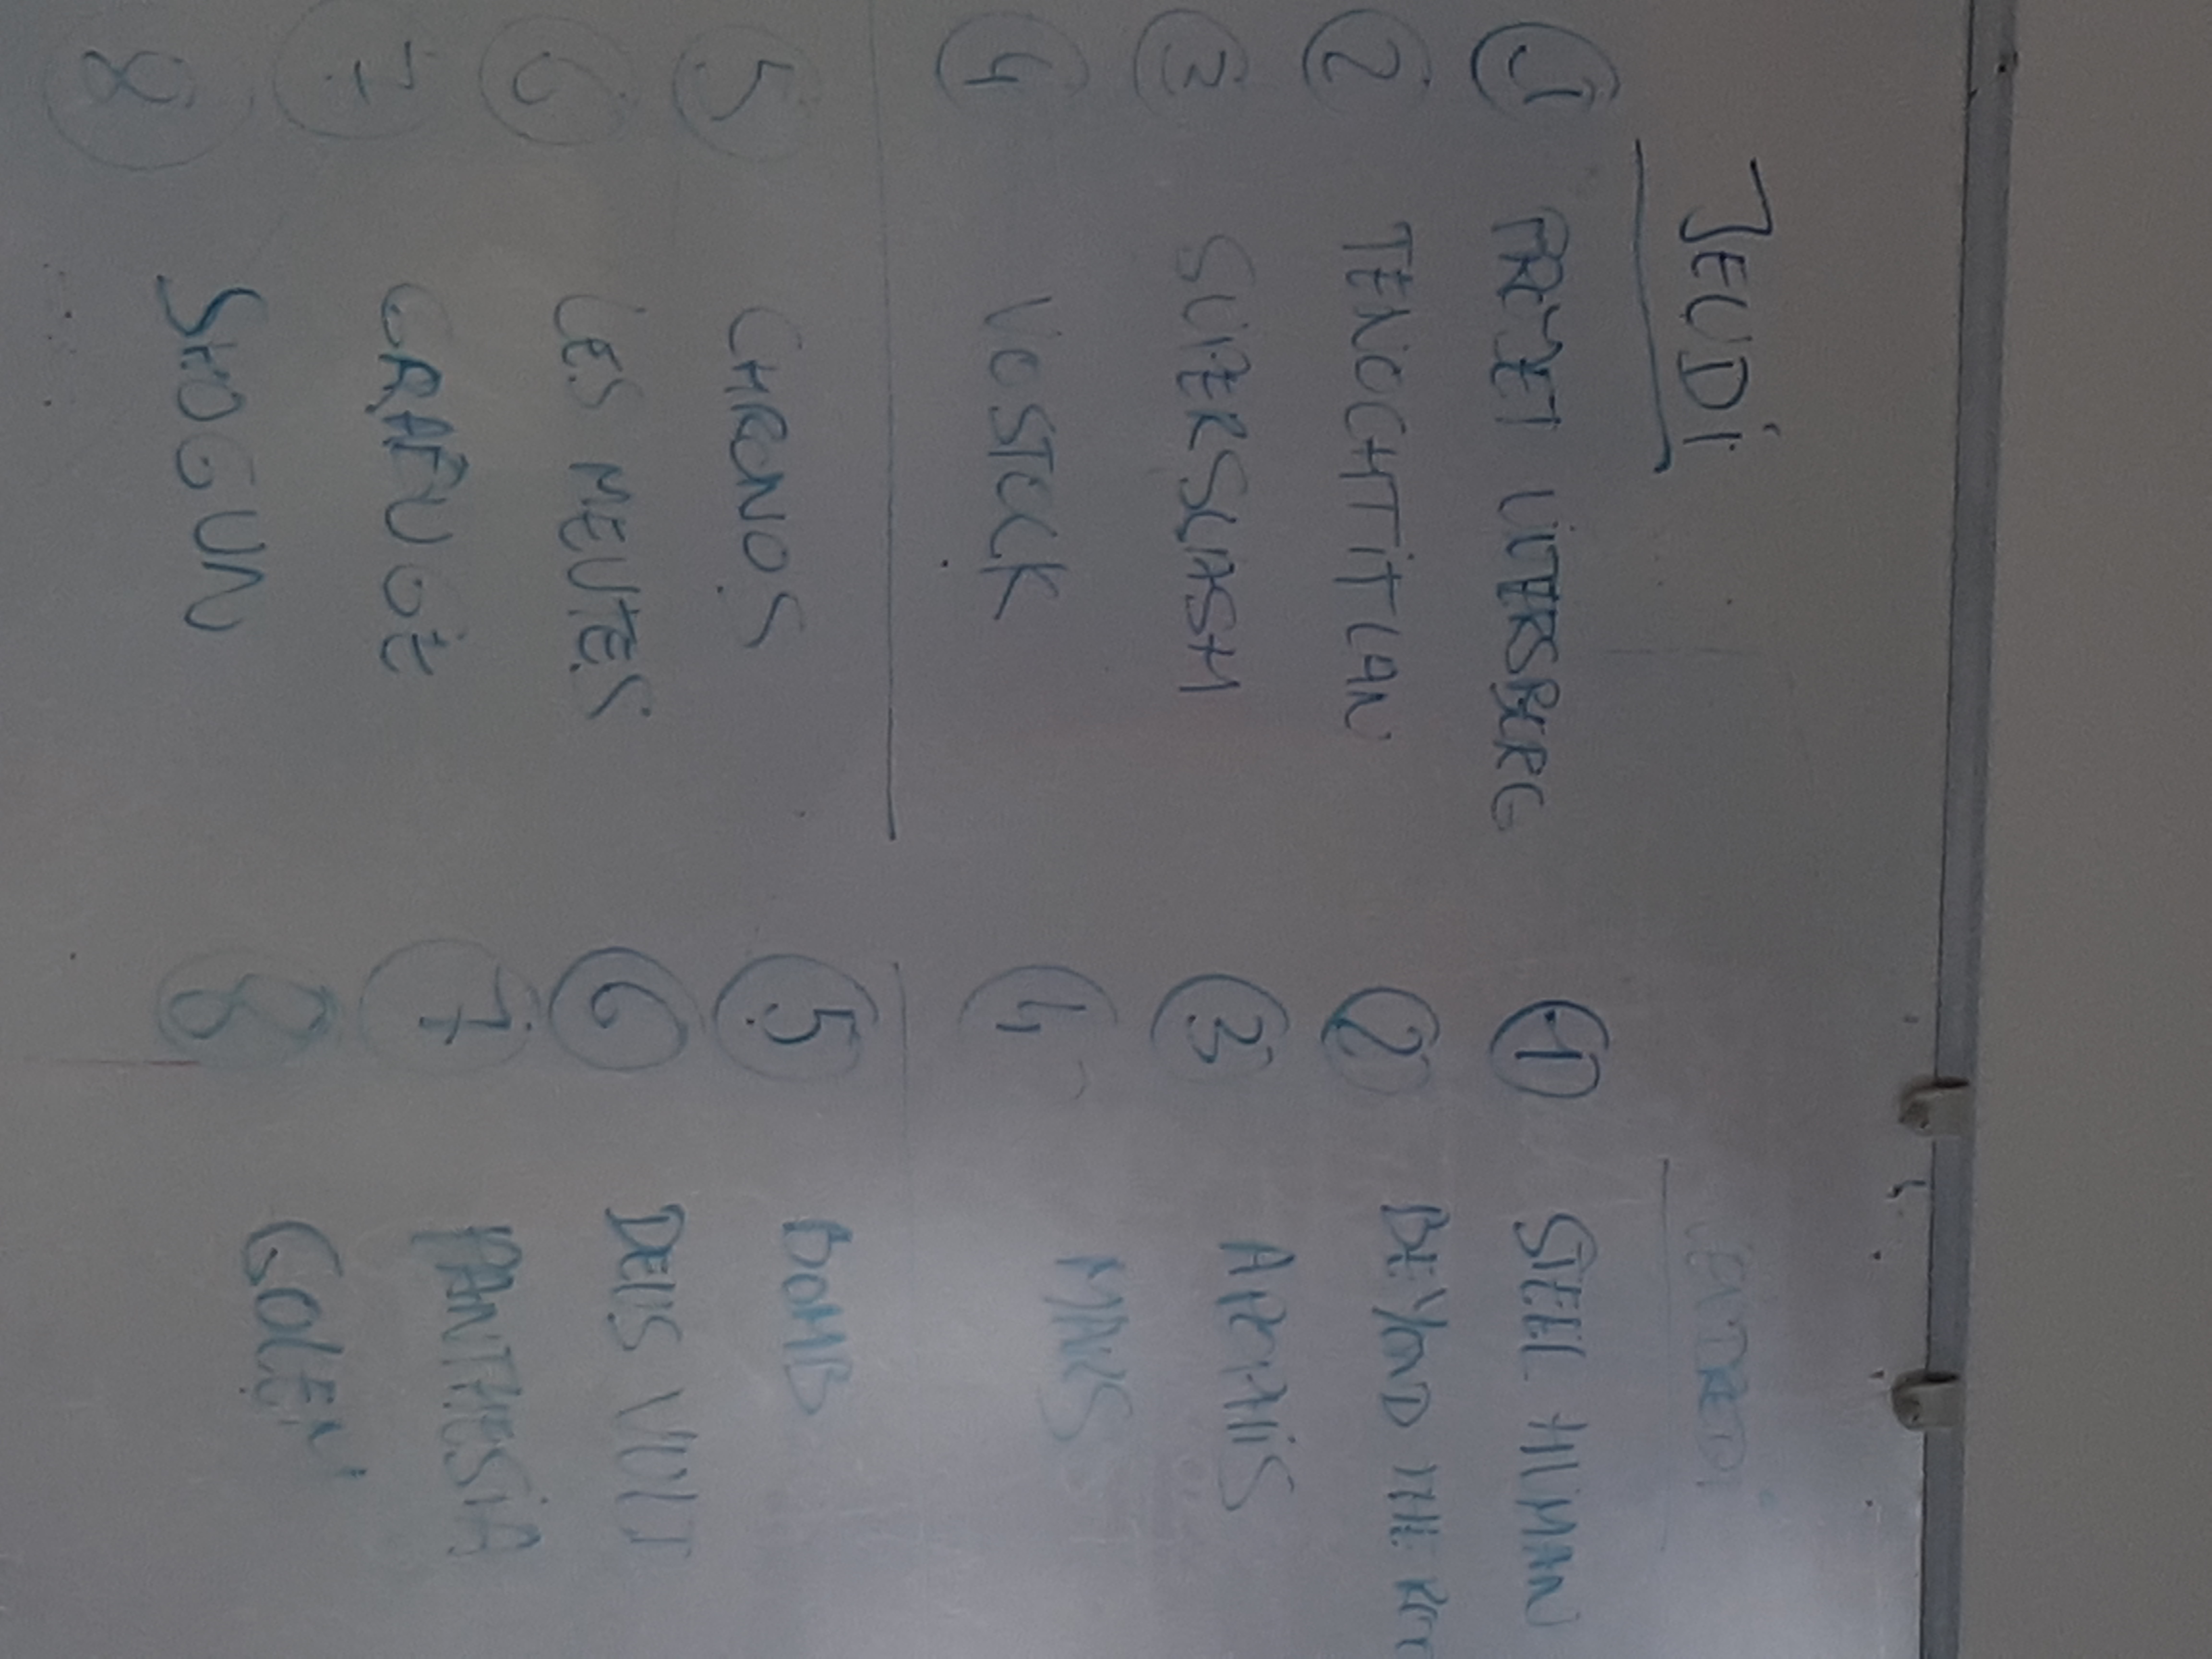 JEUDi
1 PROJET UTTERSBERG
2 TENOCHTiTLAN
3 SUPERSLASH
4 VOSTOCK
5 CHRONOS
6 LES MEUTES
7 GRAFUGE
8 SHOGUN
1 STEEL HUMAN
2 BEYOND THE
3
4
5 BOMB
6 DEUS VULT
7 PANTHESiA
8 GOLEM